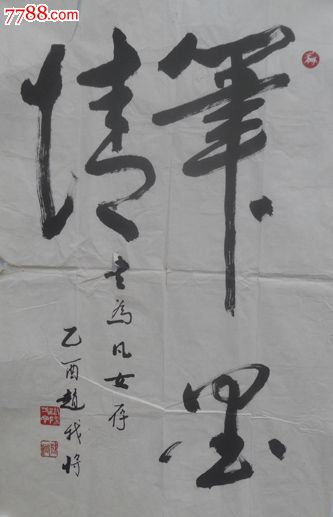 7788.com
筆墨
情
書為凡女存
乙酉趙我將